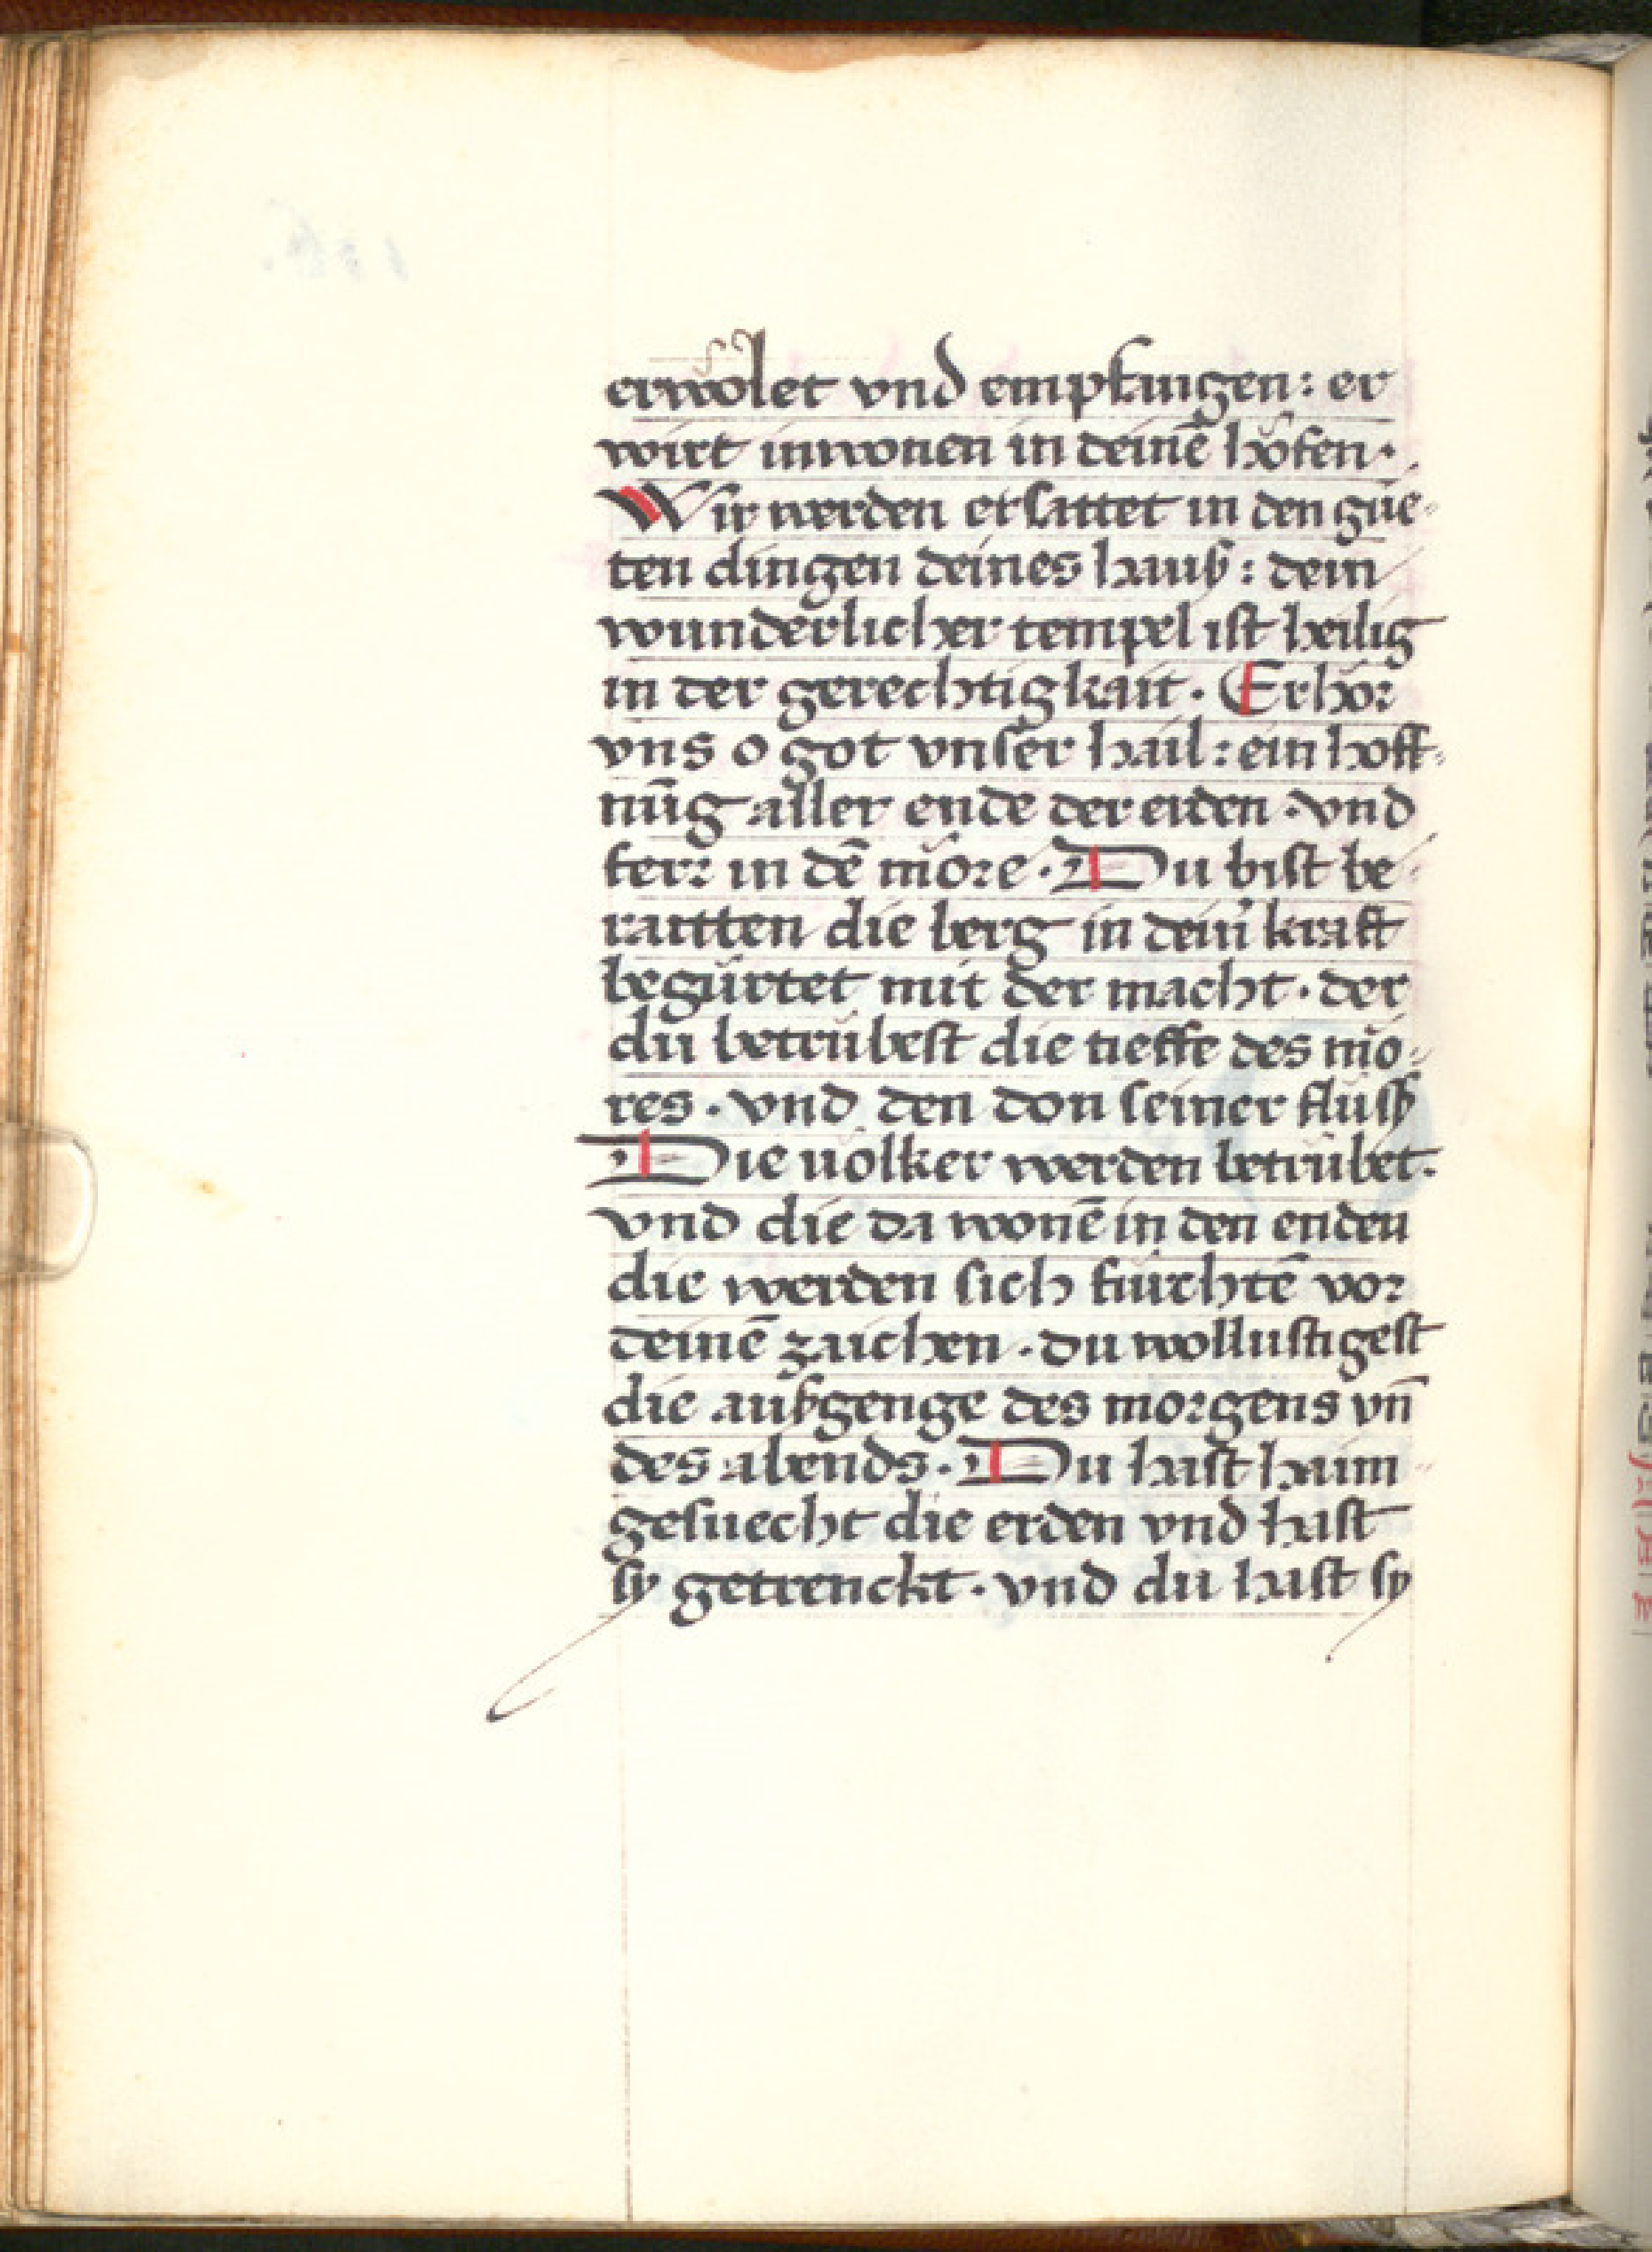 erwölet vnd empfangen: er
wirt inwonen in deinē höfen·
Wir werden ersattet in den gůe-
ten dingen deines hauß: dein
wunderlicher tempel ist heilig
in der gerechtigkait· Erhör
vns o got vnser hail: ein hoff-
nūg aller ende der erden· vnd
ferr in dē möre· Du bist be-
raitten die berg in deiner kraft
begürtet mit der macht· der
du betrübest die tieffe des mö-
res· vnd den don seiner flüsß
Die völker werden betrübet·
vnd die da wonē in den enden
die werden sich fürchtē vor
deinē zaichen· du wollustigest
die außgenge des morgens vn̄
des abends· Du hast haim-
gesuecht die erden vnd hast
sy getrenckt· vnd du hast sy